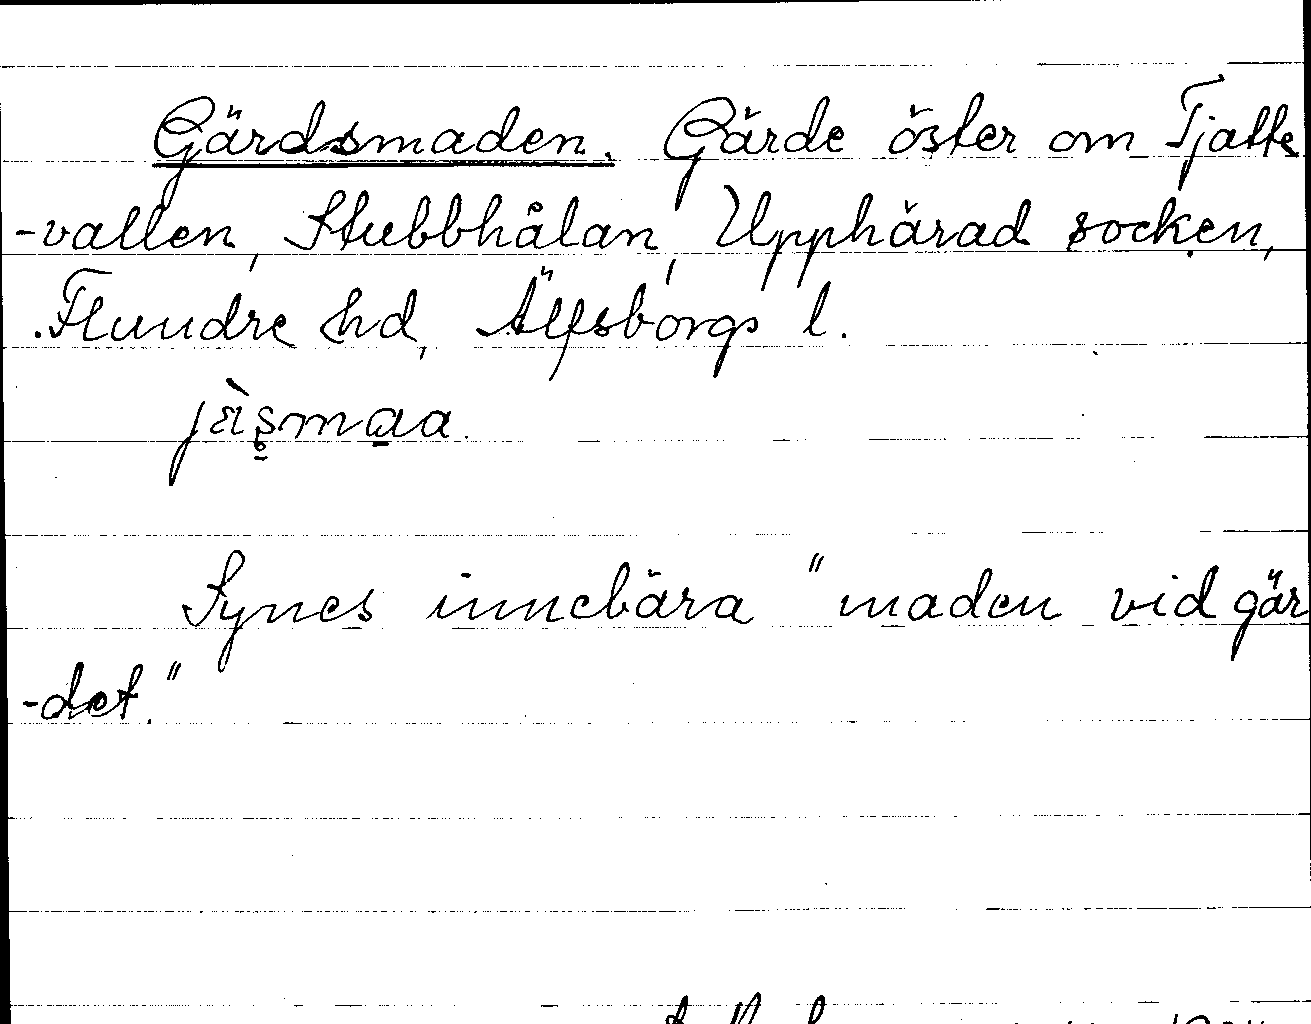 Gärdsmaden. Gärde öster om Tjatte
-vallen, Stubbhålan, Upphärad socken,
Flundre hd, Älfsborgs l.
jàs̥maa.
Synes innebära "maden vid gär
-det."